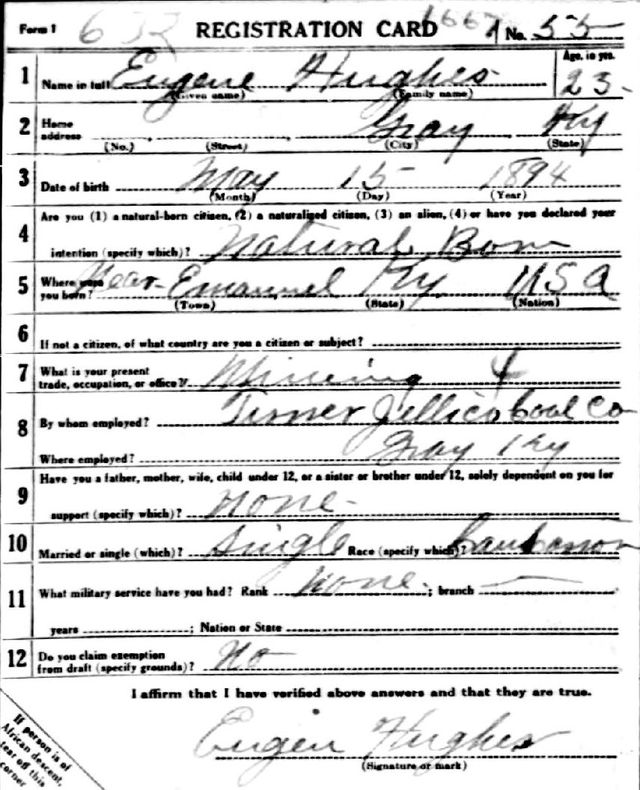 Form 1 632 REGISTRATION CARD 1667 No. 55
1 Name in full Eugene Hughes Age, in yrs. 23
(Given name) (Family name)
2 Home address Gray Ky
(No.) (Street) (City) (State)
3 Date of birth May 15 1894
(Month) (Day) (Year)
4 Are you (1) a natural-born citizen, (2) a naturalized citizen, (3) an alien, (4) or have you declared your
intention (specify which)? Natural Born
5 Where were you born? Near Emanuel Ky USA
(Town) (State) (Nation)
6 If not a citizen, of what country are you a citizen or subject?
7 What is your present
trade, occupation, or office? Mining 4
8 By whom employed? Turner Jellico Coal Co
Where employed? Gray Ky
9 Have you a father, mother, wife, child under 12, or a sister or brother under 12, solely dependent on you for
support (specify which)? none
10 Married or single (which)? Single Race (specify which)?
11 What military service have you had? Rank None ; branch
years ; Nation or State
12 Do you claim exemption
from draft (specify grounds)? No
I affirm that I have verified above answers and that they are true.
Eugen Hughes
(Signature or mark)
If person is of
African descent,
tear off this
corner